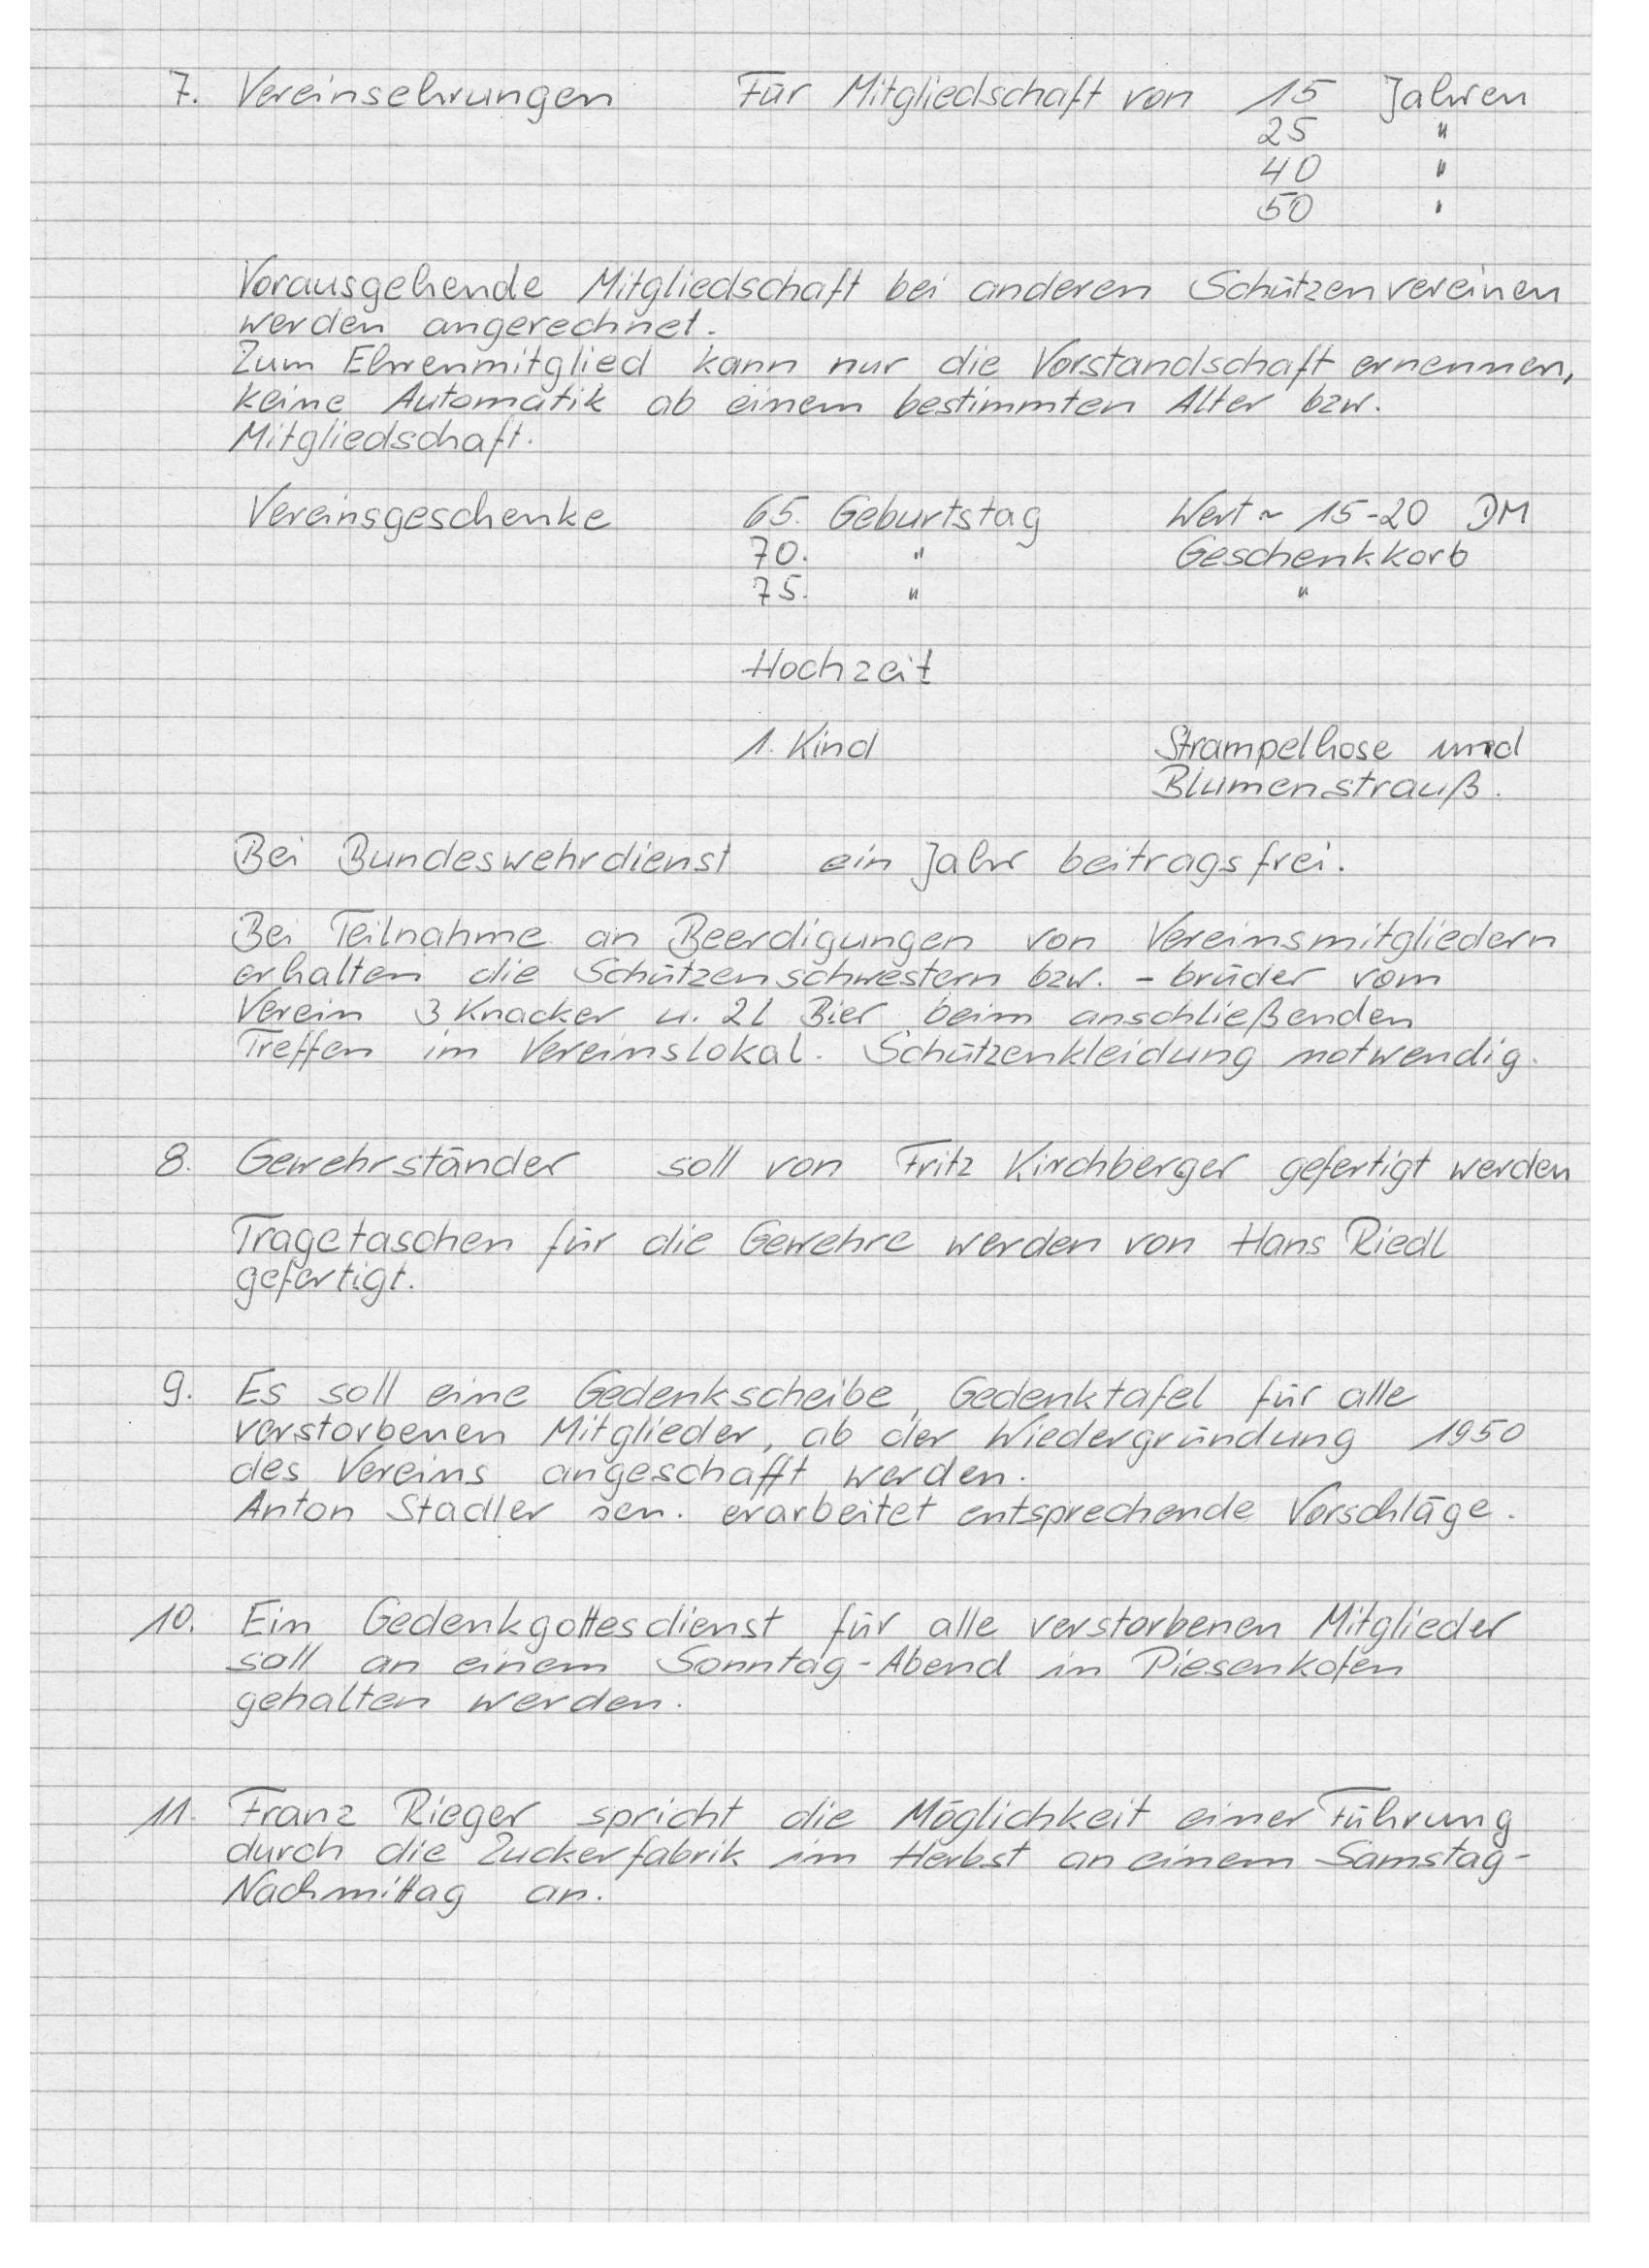 7. Vereinsehrungen Für Mitgliedschaft von 15 Jahren
25 "
40 "
50 "
Vorausgehende Mitgliedschaft bei anderen Schützenvereinen
werden angerechnet.
Zum Ehrenmitglied kann nur die Vorstandschaft ernennen,
keine Automatik ab einem bestimmten Alter bzw.
Mitgliedschaft.
Vereinsgeschenke 65. Geburtstag Wert ~ 15-20 DM
70. " Geschenkkorb
75. " "
Hochzeit
1. Kind Strampelhose und
Blumenstrauß.
Bei Bundeswehrdienst ein Jahr beitragsfrei.
Bei Teilnahme an Beerdigungen von Vereinsmitgliedern
erhalten die Schützenschwestern bzw. -brüder vom
Verein 3 Knacker u. 2l Bier beim anschließenden
Treffen im Vereinslokal. Schützenkleidung notwendig.
8. Gewehrständer soll von Fritz Kirchberger gefertigt werden
Tragetaschen für die Gewehre werden von Hans Riedl
gefertigt.
9. Es soll eine Gedenkscheibe, Gedenktafel für alle
verstorbenen Mitglieder, ab der Wiedergründung 1950
des Vereins angeschafft werden.
Anton Stadler sen. erarbeitet entsprechende Vorschläge.
10. Ein Gedenkgottesdienst für alle verstorbenen Mitglieder
soll an einem Sonntag-Abend in Piesenkofen
gehalten werden.
11. Franz Rieger spricht die Möglichkeit einer Führung
durch die Zuckerfabrik im Herbst an einem Samstag-
Nachmittag an.